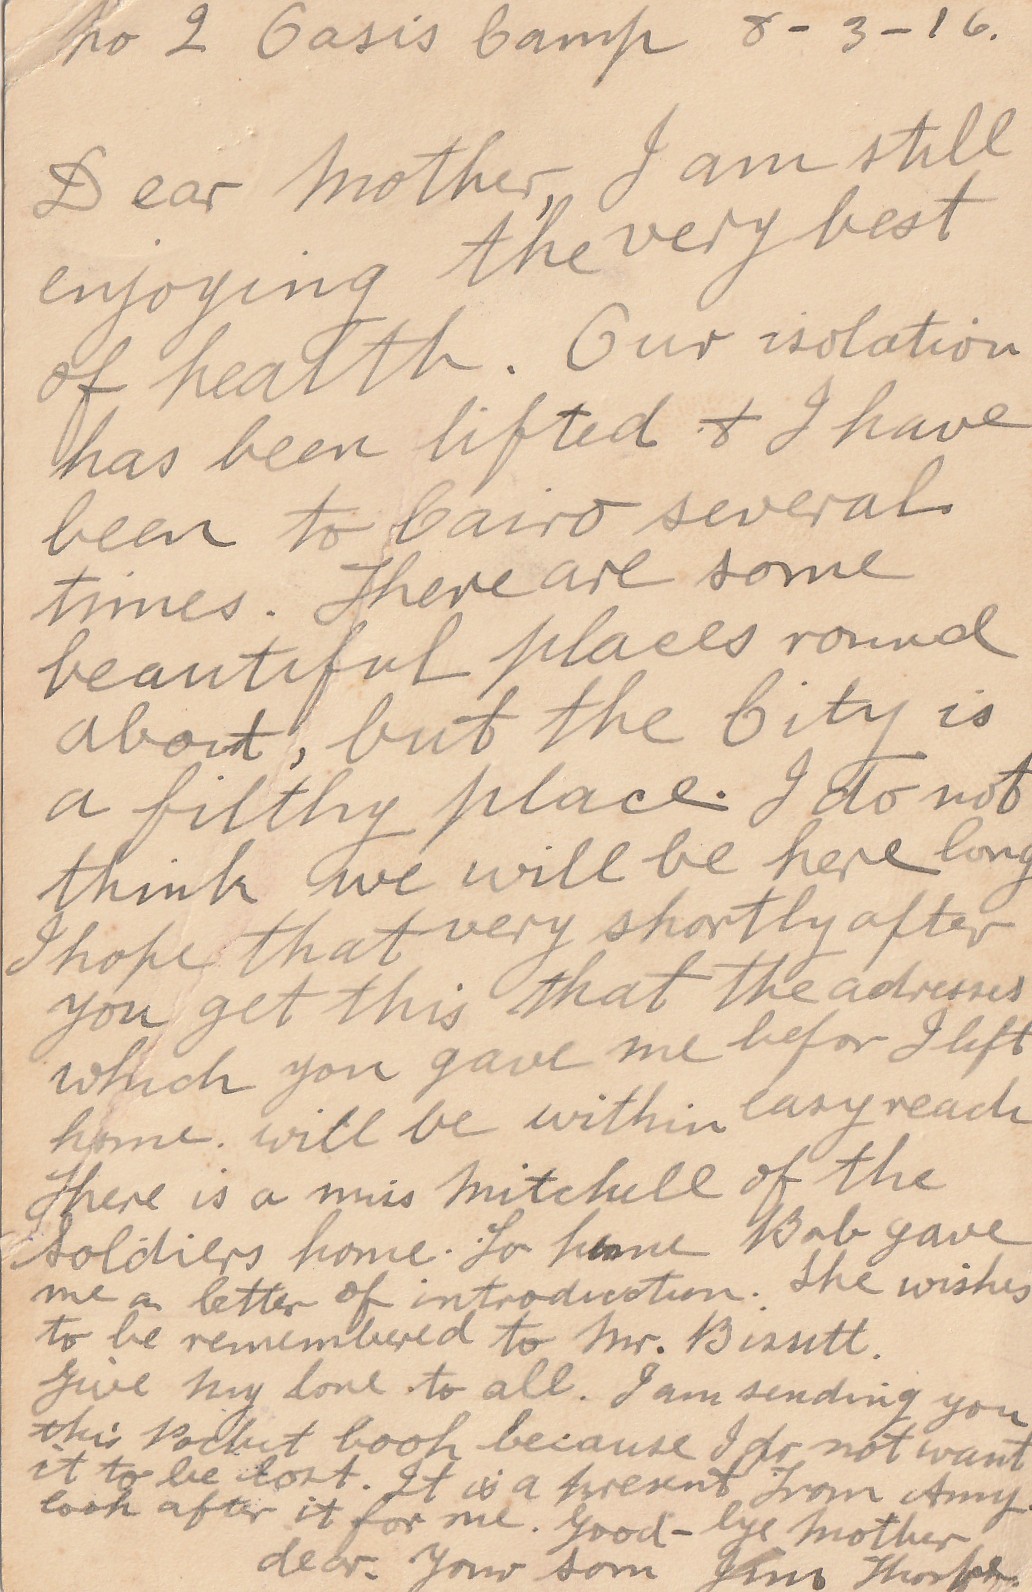 No 2 Oasis Camp 8-3-16.
Dear Mother, I am still
enjoying the very best
of health. Our isolation
has been lifted & I have
been to Cairo several
times. There are some
beautiful places round
about, but the City is
a filthy place. I do not
think we will be here long
I hope that very shortly after
you get this that the adresses
which you gave me befor I left
home. will be within easy reach
There is a miss Mitchell of the
Soldiers home. To home Bob gave
me a letter of introduction. She wishes
to be remembered to Mr. Bissett.
Give my love to all. I am sending you
this Pocket book because I do not want
it to be lost. It is a present From Amy
look after it for me. Good-bye Mother
dear. Your son Jim